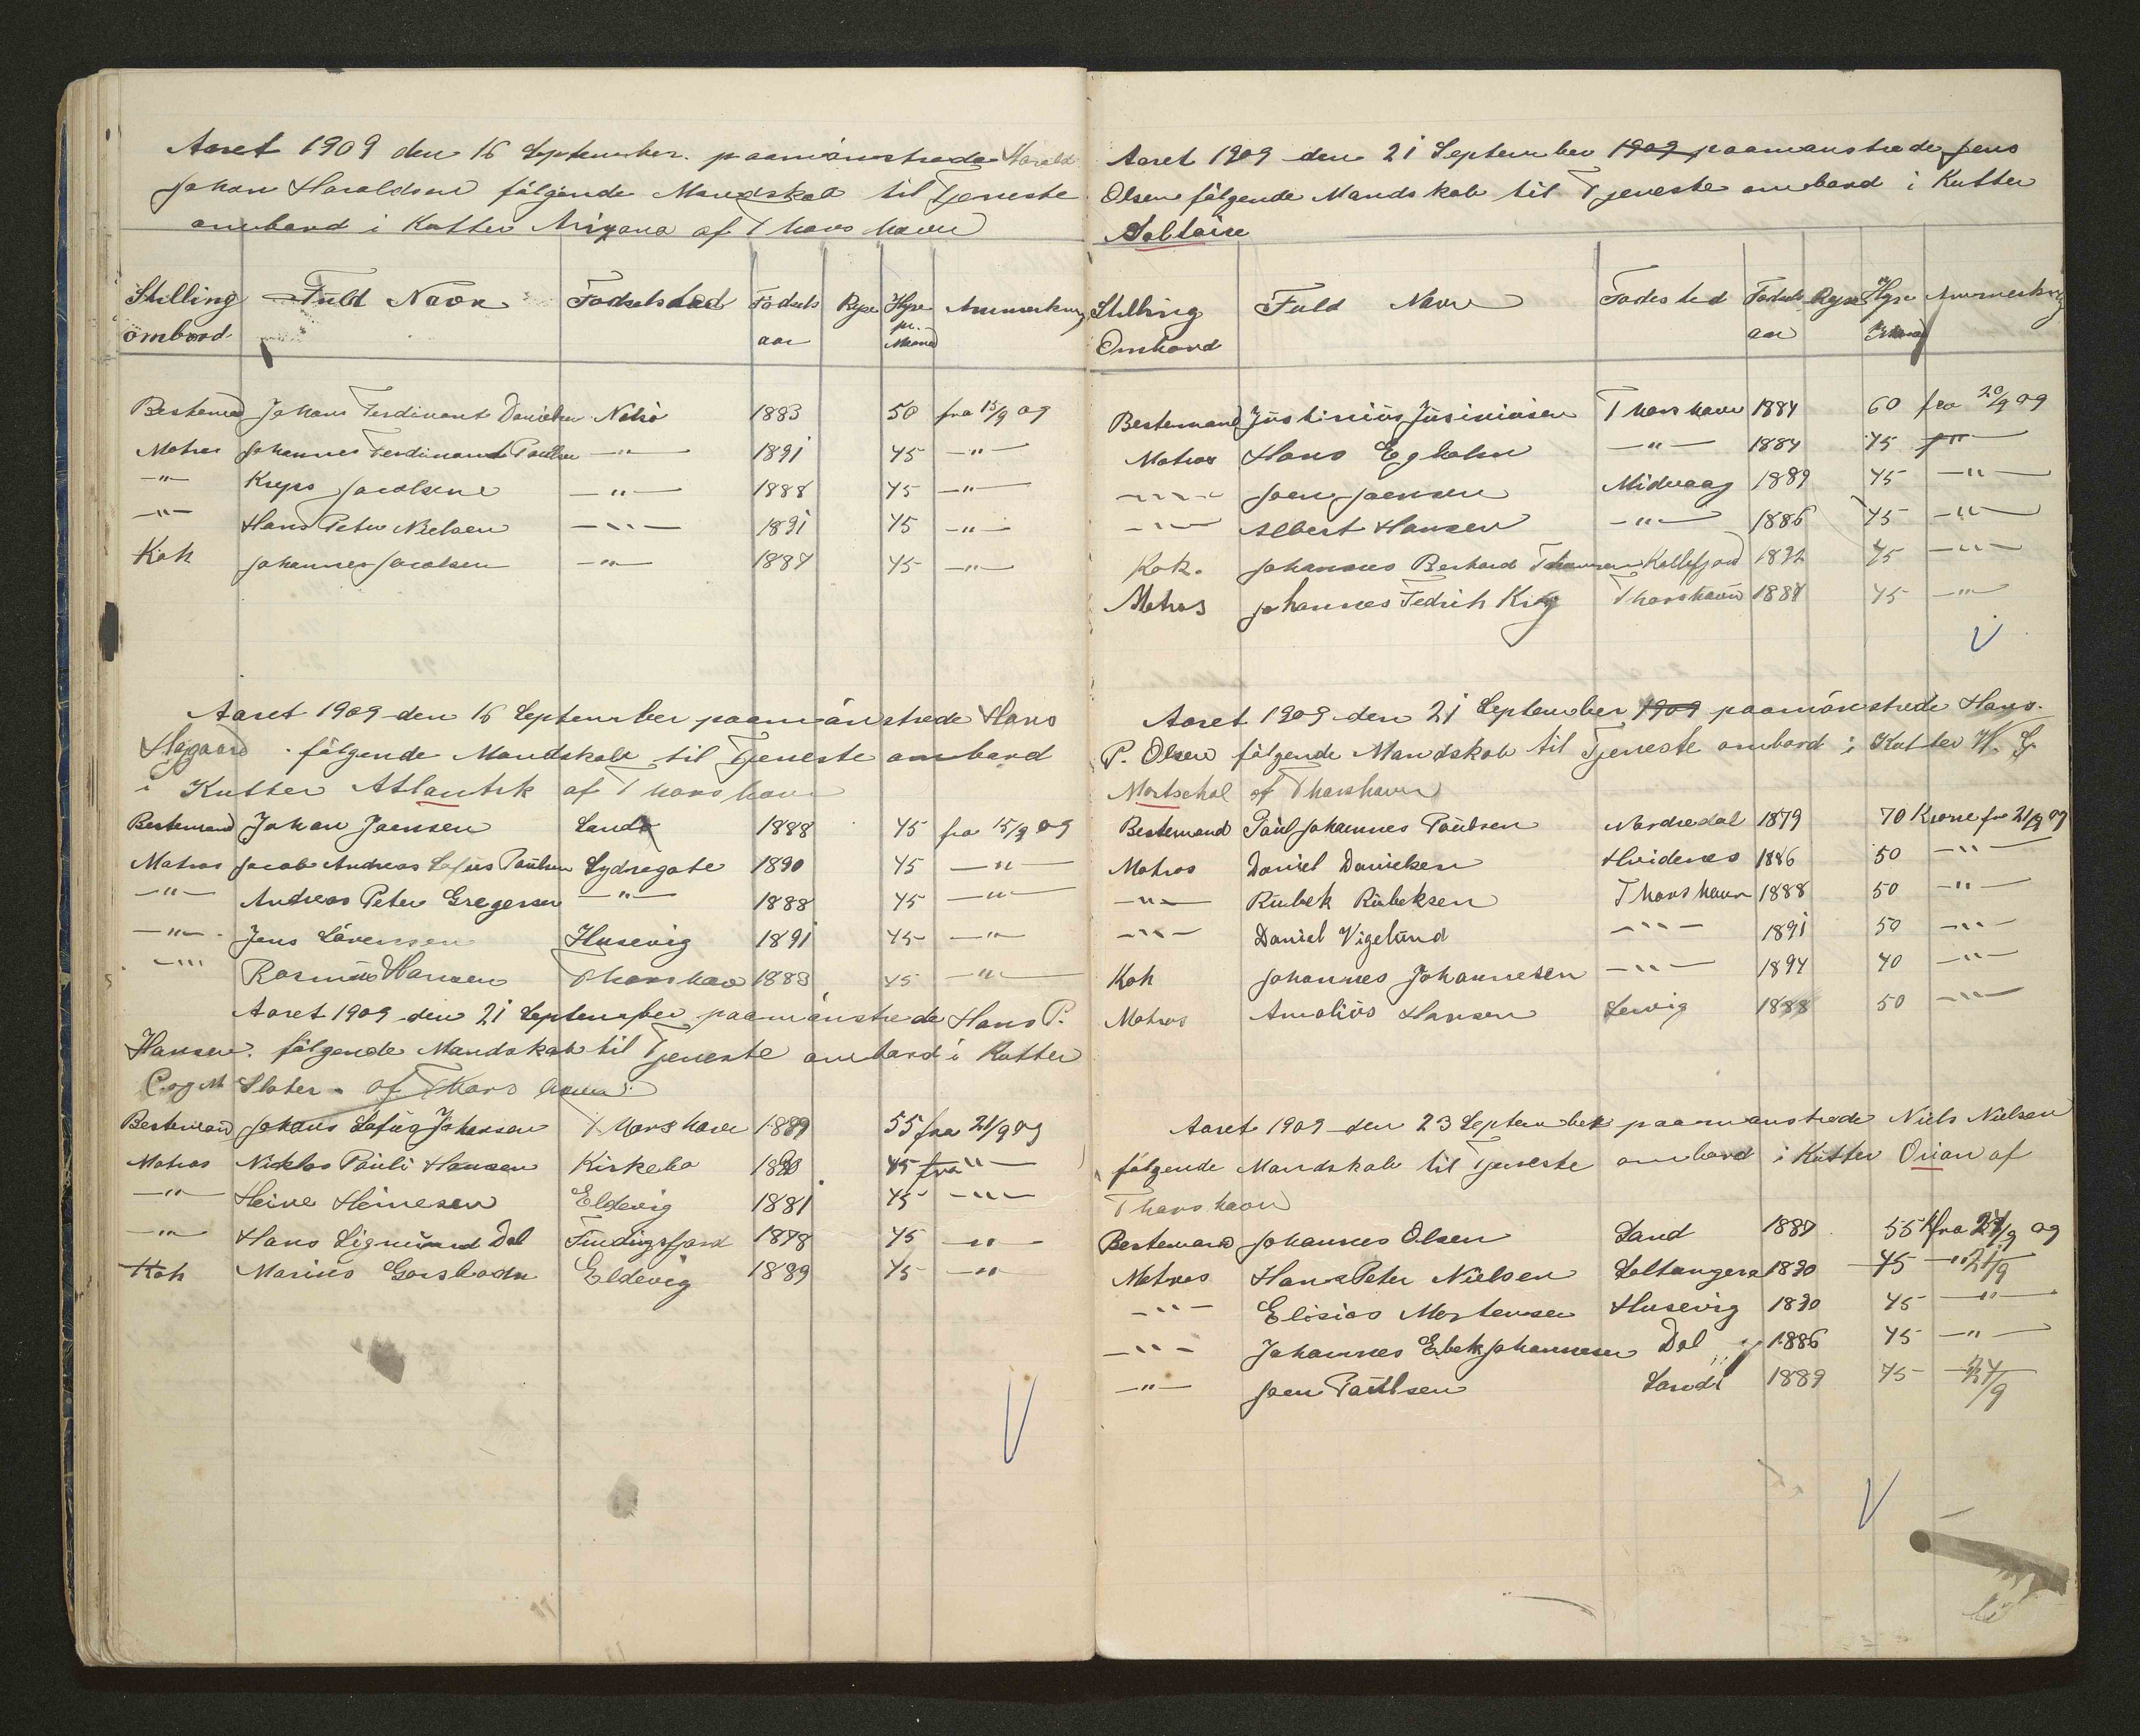 Aaret 1909 den 16 September. paamönstrede Harald
Johan Haraldsen fölgende Mandskab til Tjeneste
ombord i Kutter af Thorshavn
Stilling ombord Fuld Navn Fødselssted Födsels aar Rejse Hyre pr. Maaned Anmerkning
Bestemand Johans Ferdinant Danielsen Nolsö 1883 50 fra 15/9 09
Matros Johannes Ferdinand Poulsen —"— 1891 45 —"—
—"— Jacobsen —"— 1888 45 —"—
—"— Hans Peter Nielsen —"— 1891 45 —"—
Kok Johannes Jacobsen —"— 1887 45 —"—
Aaret 1909 den 16 September paamönstrede Hans
Højgaard. fölgende Mandskab til Tjeneste ombord
i Kutter Atlantik af Thorshavn
Bestemand Johan Joensen Sand 1888 45 fra 15/9 09
Matros Jacob Andreas Poulsen Sydregøte 1890 45 —"—
—"— Andreas Peter Gregersen —"— 1888 45 —"—
—"— Jens Sörensen Husevig 1891 45 —"—
—"— Rasmus Hansen Thorshavn 1883 45 —"—
Aaret 1909 den 21 September paamönstrede Hans P.
Hansen. fölgende Mandskab til Tjeneste ombord i Kutter
C og M Slater. af Thorshavn
Bestemand Johans Johansen Thorshavn 1889 55 fra 21/9 09
Matros Nicklas Pauli Hansen Kirkebø 1890 45 fra —"—
—"— Heine Heinesen Eldevig 1881 45 —"—
—"— Hans Sigmund Dal Fundingsfjord 1878 45 —"—
Kok Marius Eldevig 1889 45 —"—
Aaret 1909 den 21 September 1909 paamønstrede Jens
Olsen fölgende Mandskab til Tjeneste ombord i Kutter
Soltaire
Stilling Ombord Fuld Navn Fødested Fødsels aar Rejse Hyre Maaned Anmerkning
Bestemand Justinius Jusiniusen Thorshavn 1884 60 fra 20/9 09
Matros Hans Egholm —"— 1884 45 —"—
—"— Joen Joensen Midvaag 1889 45 —"—
—"— Albert Hansen —"— 1886 45 —"—
Kok. Johannes Berhard Thomsen Kollefjord 1892 45 —"—
Matros Johannes Fedrik Thorshavn 1888 45 —"—
Aaret 1909 den 21 September 1909 paamönstrede Hans.
P. Olsen fölgende Mandskab til Tjeneste ombord i Kutter W. G.
af Thorshavn
Bestemand Paul Johannes Paulsen Nordredal 1879 70 Krone fra 21/9 09
Matros Daniel Danielsen Hvidenes 1886 50 —"—
—"— Rubek Rubeksen Thorshavn 1888 50 —"—
—"— Daniel Vigelund —"— 1891 50 —"—
Kok Johannes Johannesen —"— 1894 40 —"—
Matros Amalius Hansen Lervig 1888 50 —"—
Aaret 1909 den 23 September paamønstrede Niels Nielsen
fölgende Mandskab til Tjeneste ombord i Kutter Orion af
Thorshavn
Bestemand Johannes Olsen Sand 1887 55 fra 09
Matros Hans Peter Nielsen Saltangera 1890 45 —"— 21/9
—"— Elisias Mortensen Husevig 1890 45 —"—
—"— Johannes Johannesen Dal 1886 45 —"—
—"— Joen Paulsen Sand 1889 45 21/9